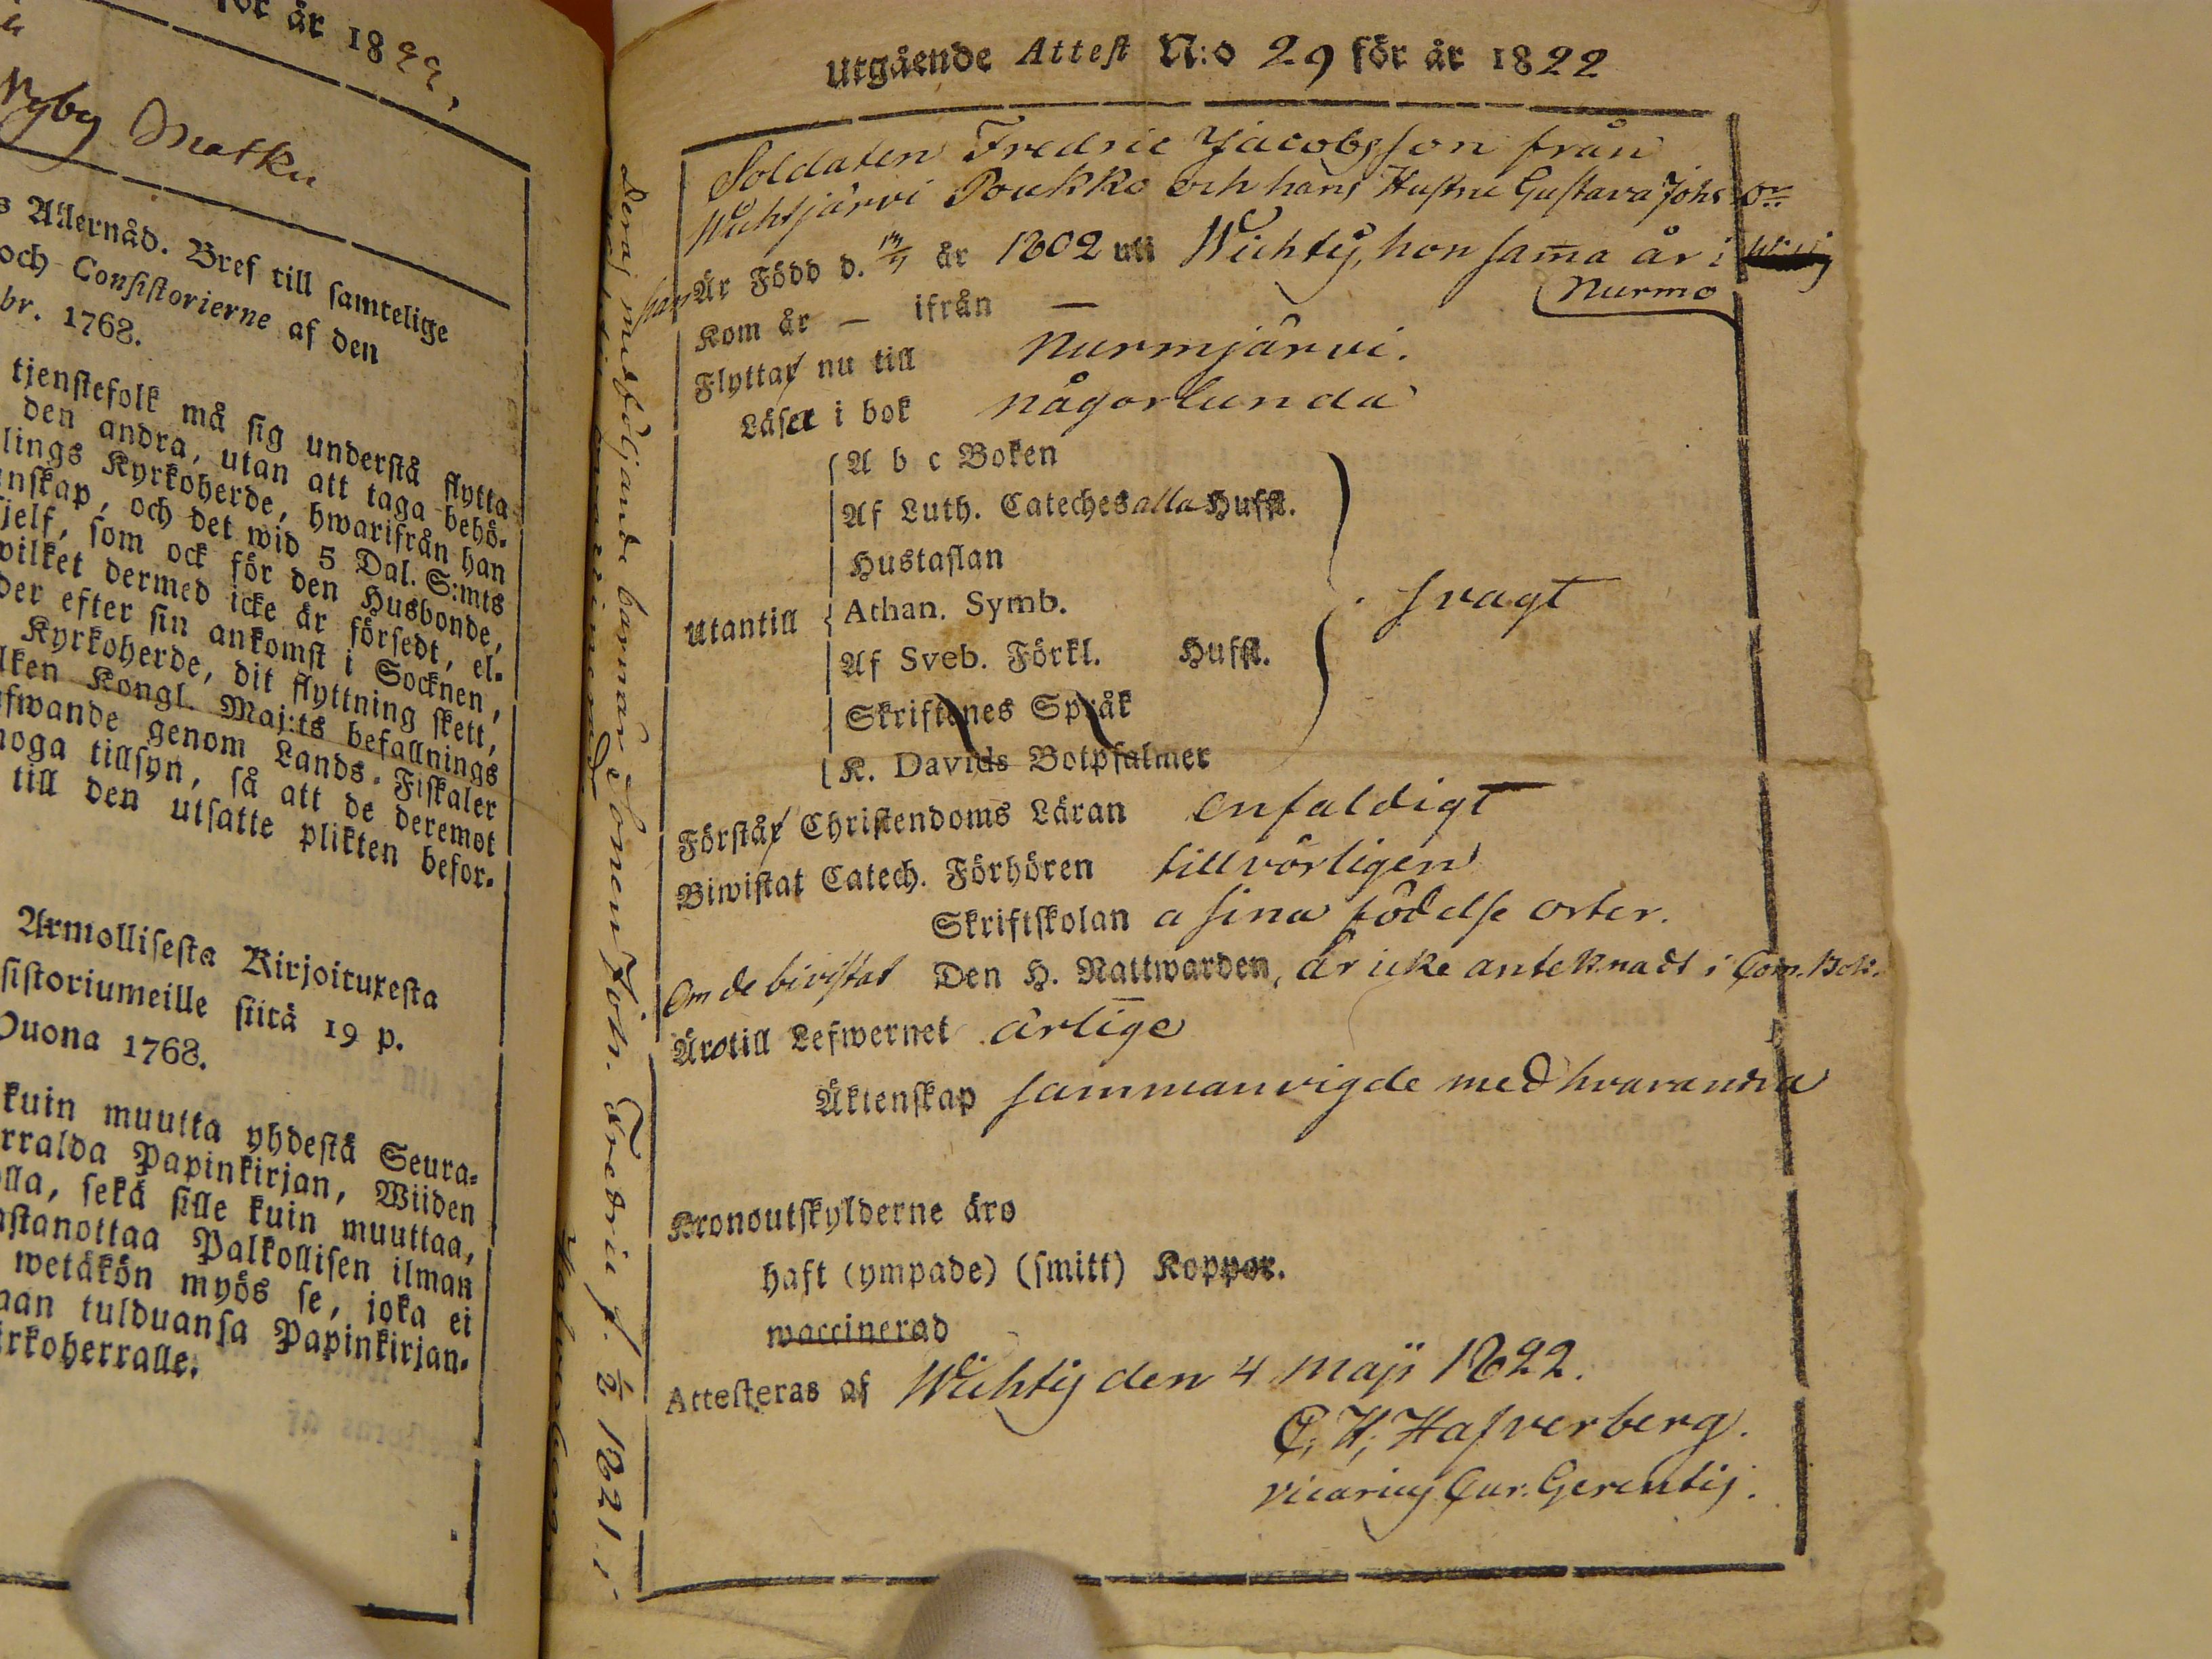 för år 1822.
Nyby Matku
s Allernåd. Bref till samtelige
och Consistorierne af den
br. 1768.
tjenstefolk må sig understå flytta
den andra, utan att taga behö-
lings Kyrkoherde, hwarifrån han
nskap, och det wid 5 Dal. S:mts
jelf, som ock för den Husbonde,
wilket dermed icke är försedt, el-
der efter sin ankomst i Socknen,
Kyrkoherde, dit flyttning skett,
lken Kongl. Maj:ts befallnings
fwande genom Lands-Fiskaler
noga tillsyn, så att de deremot
till den utsatte plikten befor-
Armollisesta Kirjoituxesta
sistoriumeille siitä 19 p.
Ouona 1768.
kuin muutta yhdestä Seura-
rralda Papinkirjan, Wiiden
olla, sekä sille kuin muuttaa,
astanottaa Palkollisen ilman
wetäkön myös se, joka ei
aan tulduansa Papinkirjan-
irkoherralle.
Utgående Attest N:o 29 för år 1822
Soldaten Fredric Jacobsson från
Wichtjärvi Poukko och hans Hustru Gustava Johs Dr
han Är Född d. år 1802 uti Wichtis, hon sama år i
Nurmo
Kom år — ifrån —
Flyttar nu till Nurmjärvi.
Läser i bok någorlunda
Utantill
A b c Boken
Af Luth. Cateches alla Hufst.
Hustaflan
Athan. Symb.
Af Sveb. Förkl. Hufst.
Skriftenes Språk
K. Davids Botpsalmer
svagt
Förstår Christendoms Läran enfaldigt
Biwistat Catech. Förhören tillbörligen
Skriftskolan a sina födelse orter.
Om de bivistat Den H. Nattwarden, är icke anteknadt i Com. Bok.
Äro till Lefwernet ärlige
Äktenskap sammanvigde med hvarandra
Kronoutskylderne äro
haft (ympade) (smitt) Koppor.
waccinerad
Attesteras af Wichtis den 4 Maji 1822.
C. H. Hasverberg.
vicarius Cur. Gerentis.
Deras medföljande barn är Sonen Joh. Fredric f. 1821 i